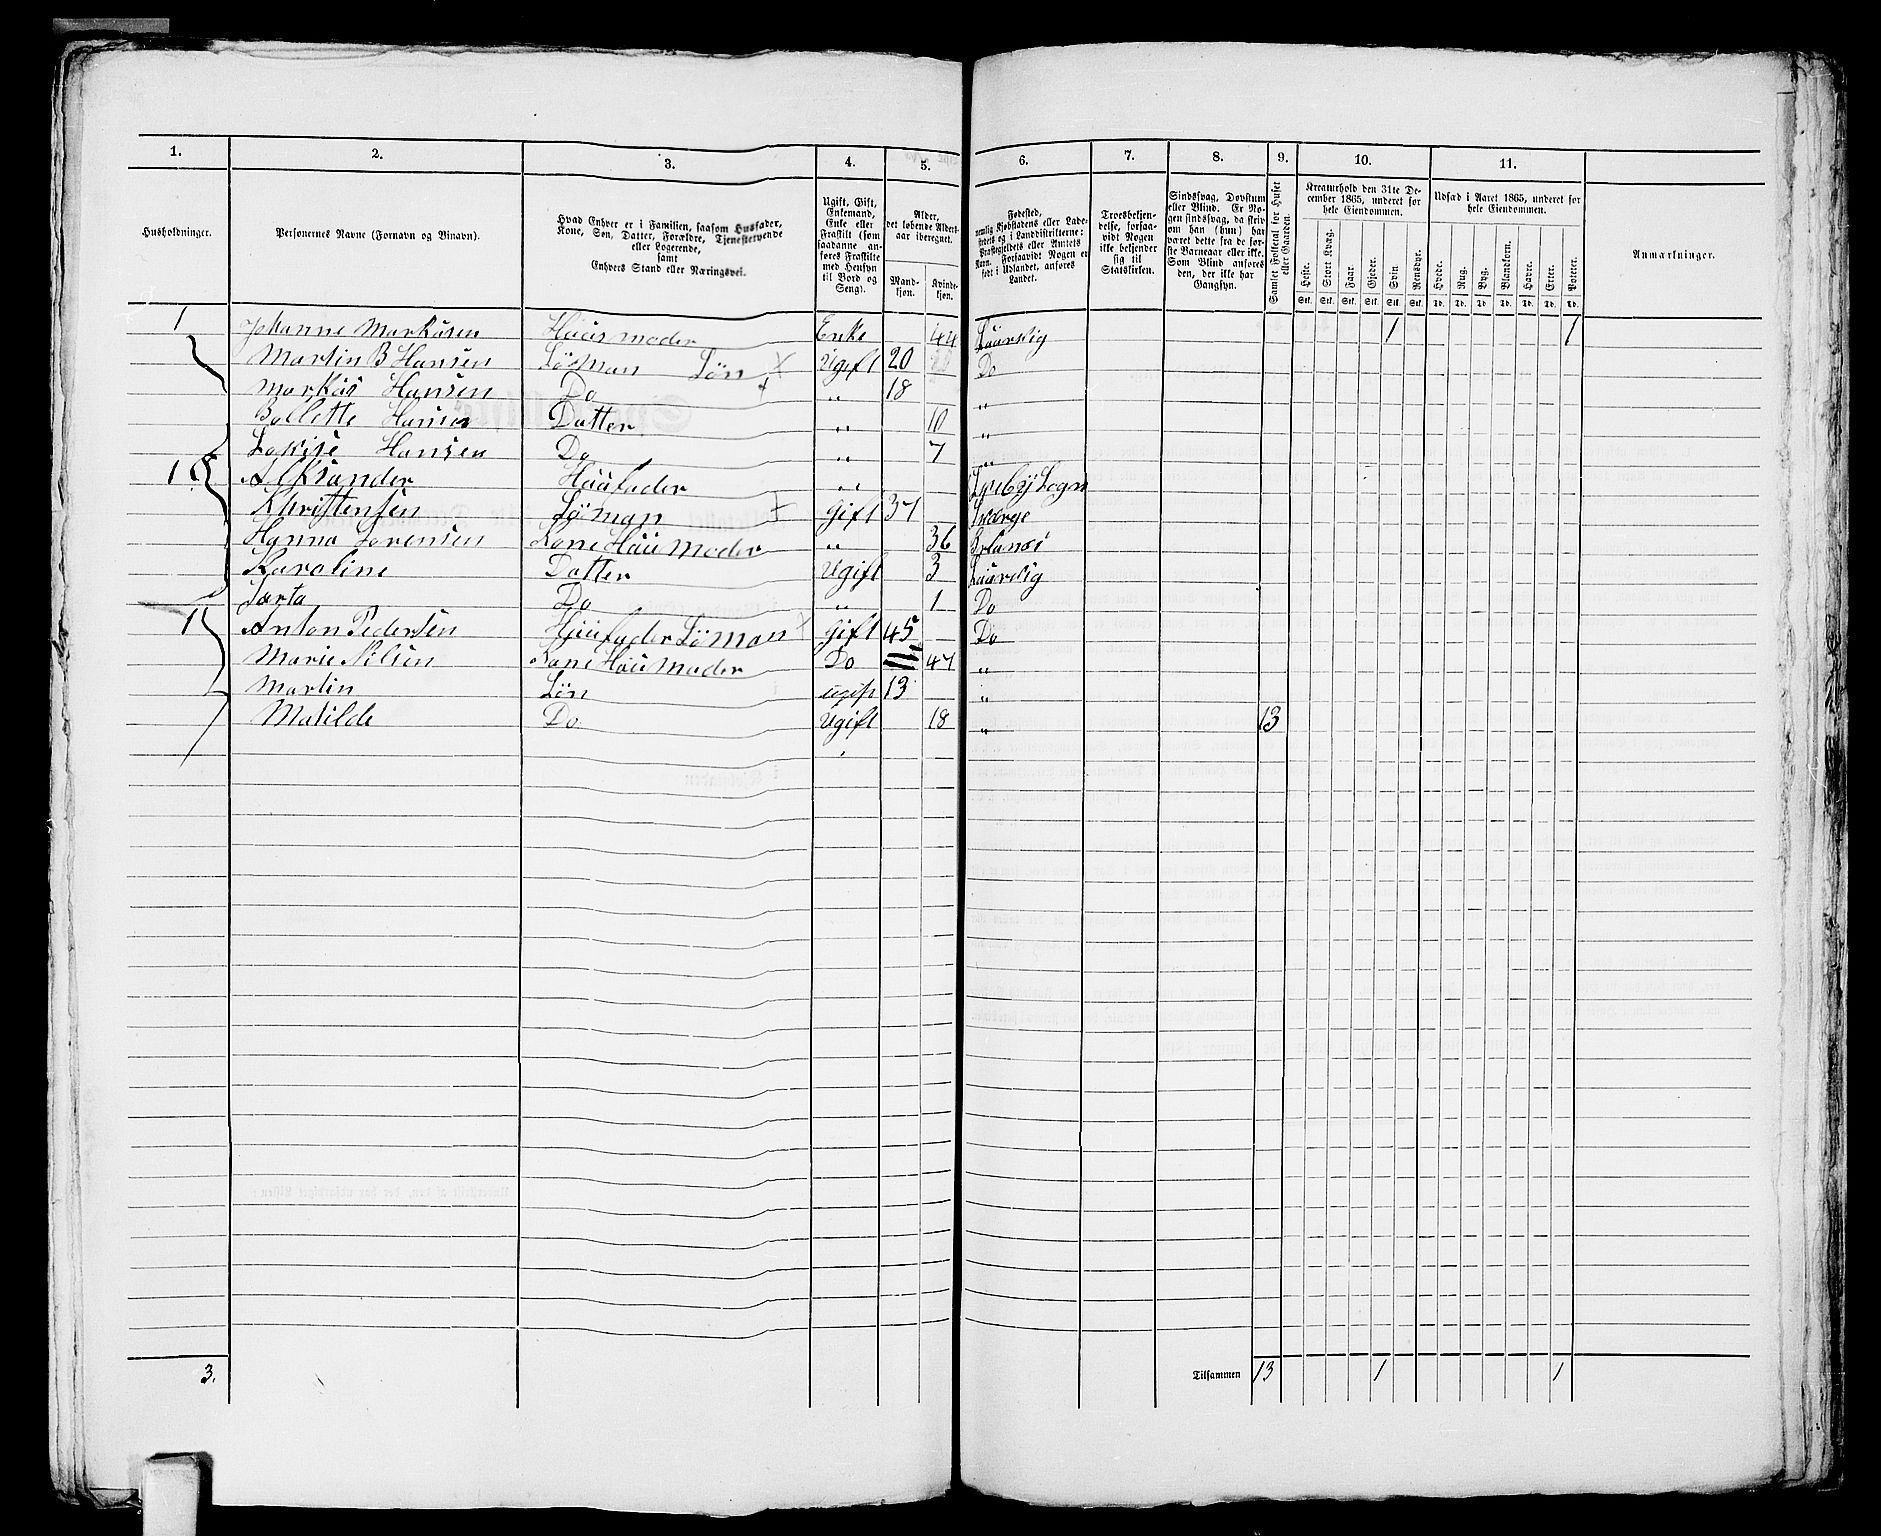 1. 2. 3. 4. 5. 6. 7. 8. 9. 10. 11.
Husholdninger.
Personernes Navne (Fornavn og Binavn).
Hvad Enhver er i Familien, saasom Husfader,
Kone, Søn, Datter, Forældre, Tjenestetyende
eller Logerende,
samt
Enhvers Stand eller Næringsvei.
Ugift, Gift,
Enkemand,
Enke eller
Fraskilt (som
saadanne an-
føres Fraskilte
med Hensyn
til Bord og
Seng).
Alder,
det løbende Alders-
aar iberegnet.
Mand-
kjøn.
Kvinde-
kjøn.
Fødested,
nemlig Kjøbstadens eller Lade-
stedets og i Landdistrikterne:
Præstegjeldets eller Amtets
Navn. Forsaavidt Nogen er
født i Udlandet, anføres
Landet.
Troesbekjen-
delse, forsaa-
vidt Nogen
ikke bekjender
sig til
Statskirken.
Sindssvag, Døvstum
eller Blind. Er No-
gen sindssvag, da skriv
om han (hun) har
været dette fra de før-
ste Barneaar eller ikke.
Som Blind anføres
den, der ikke har
Gangsyn.
Samlet Folketal for Huset
eller Gaarden.
Kreaturhold den 31te De-
cember 1865, underet for
hele Eiendommen.
Heste. Stort Kvæg. Faar. Gjeder. Svin. Rensdyr.
Stk. Stk. Stk. Stk. Stk. Stk.
Udsæd i Aaret 1865, underet for
hele Eiendommen.
Hvede. Rug. Byg. Blandkorn. Havre. Erter. Poteter.
Td. Td. Td. Td. Td. Td. Td.
Anmærkninger.
1 Johanne Markusen Huusmoder Enke 44 Laurvig 1 1
Martin B Hansen Søman Søn Ugift 20 Do
Markus Hansen Do " 18 "
Bollette Hansen Datter " 10 "
Lovise Hansen Do " 7 "
1 Alksander Huusfader " Sogn
Khristensen Søman Gift 37 Sverge
Hanna Sørensen Kone Huusmoder " 36
Karoline Datter Ugift 3 Laurvig
Do " 1 Do
1 Anton Pedersen Huusfader Søman Gift 45 Do
Marie Nilsen Kone Huusmoder Do 47 "
Martin Søn ugift 13 "
Matilde Do Ugift 18 " 13
3.
Tilsammen 13 1 1